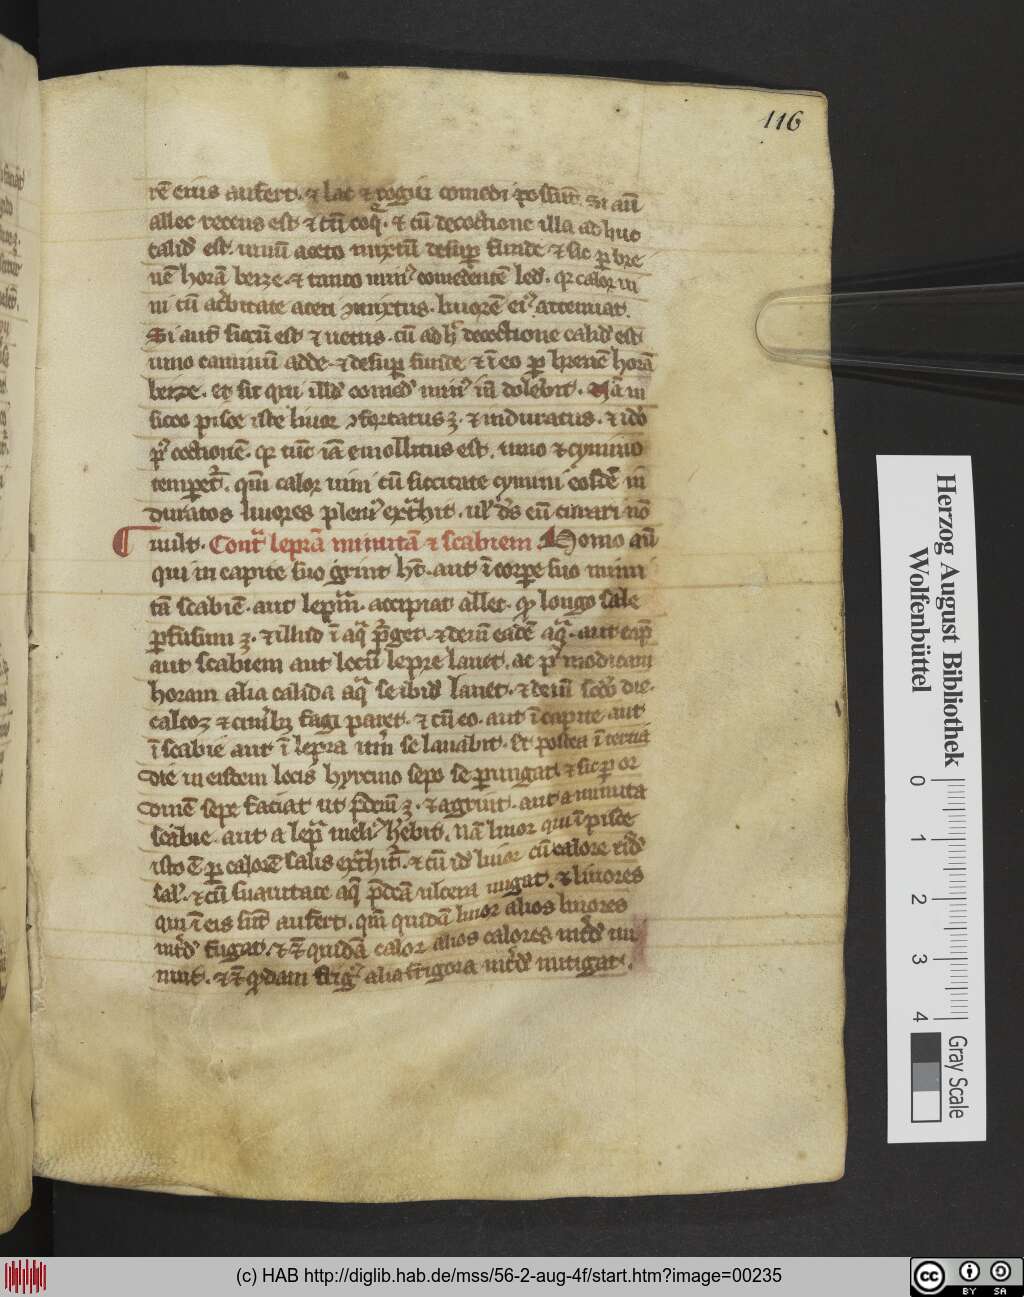 116
rē eius aufert. ⁊ lac ⁊ rogui comedi possūt. Si aū
allec recens est ⁊ tūc coq̄. ⁊ cū decoctione illa ad huc
calid est. uinū aceto mixtū desup funde ⁊ sic p bre
uē horā beize. ⁊ tanto min comedentē led. qr calor ui
ni cū acbitate aceti mixtus. liuorē ei attenuat.
Si aut siccū est ⁊ uetus. cū ad h decoctione calid est
uino ciminū adde. ⁊ desup funde ⁊ ī eo p breuē horā
beize. et sic qui illd comed min in dolebit. Nā in
sicco pisce iste liuor ꝯfortatus ⁊ induratus. ⁊ ido
p coctionē. qr tūc iā emollitus est. uino ⁊ cymino
temperet. qm calor uini cū siccitate cymini eosdē in
duratos liuores pleni extahit. ul ds eū curari nō
uult. Contra leprā minutā ⁊ scabiem. Homo aū
qui in capite suo grint ht. aut ī corpe suo minu
tā scabiē. aut lepram. accipiat allec. qd longo sale
pfusum ⁊ illud ī aq pget. ⁊ deīn eadē aq. aut cap
aut scabiem aut locū lepre lauet. ac p modicam
horam alia calida aq se ibid lauet. ⁊ deīn scdo die.
calcoz ⁊ cinib fagi paret. ⁊ cū eo. aut ī capite aut
ī scabie aut ī lepra itm se lauabit. Et postea ī tertia
die in eisdem locis hyrcino sepo se pungat ⁊ sic p or
dinē sepe faciat ut pdcm ⁊. ⁊ a grint. aut a minuta
scabie. aut a lepra meli hebit. Nā liuor qui ī pisce
isto ē p calorē salis extahit. ⁊ cū id liuor cū calore eid
sal. ⁊ cū suauitate aq pdcā ulcera tangat. ⁊ liuores
qui ī eis sūt aufert. qm quidā liuor alios liuores
int̄d fugat. ⁊ quidā calor alios calores int̄d mi
nuit. ⁊ qddam frig alia frigora int̄d mitigat.
Herzog August Bibliothek
Wolfenbüttel
0 1 2 3 4
Gray Scale
(c) HAB http://diglib.hab.de/mss/56-2-aug-4f/start.htm?image=00235
cc BY SA